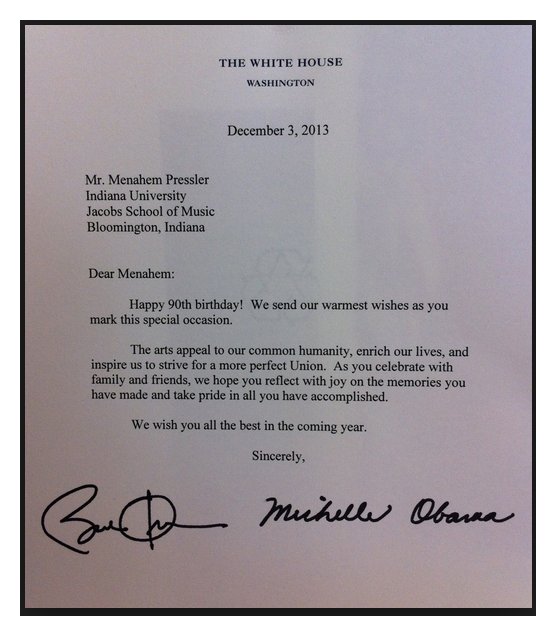 THE WHITE HOUSE
WASHINGTON
December 3, 2013
Mr. Menahem Pressler
Indiana University
Jacobs School of Music
Bloomington, Indiana
Dear Menahem:
Happy 90th birthday! We send our warmest wishes as you
mark this special occasion.
The arts appeal to our common humanity, enrich our lives, and
inspire us to strive for a more perfect Union. As you celebrate with
family and friends, we hope you reflect with joy on the memories you
have made and take pride in all you have accomplished.
We wish you all the best in the coming year.
Sincerely,
Michelle Obama